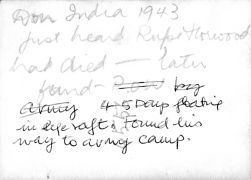 Don India 1943
Just heard Rupe Horwood
had died — later
found — Don by
army 4 5 Days floating
in life raft. Found his
way to army camp.